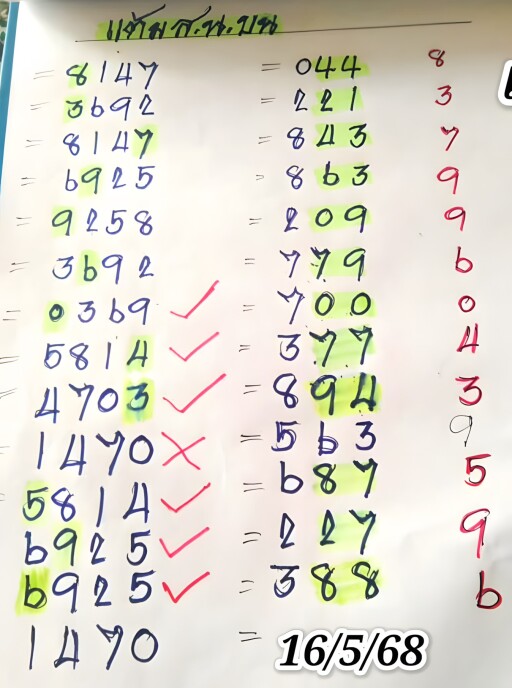 แต้ม ส.น.บน
= 8147 = 044 8
= 3692 = 221 3
= 8147 = 843 7
= 6925 = 863 9
= 9258 = 209 9
= 3692 = 779 6
= 0369 ✓ = 700 0
= 5814 ✓ = 377 4
= 4703 ✓ = 894 3
= 1470 ✗ = 563 9
= 5814 ✓ = 687 5
= 6925 ✓ = 227 9
6925 ✓ = 388 6
1470 = 16/5/68